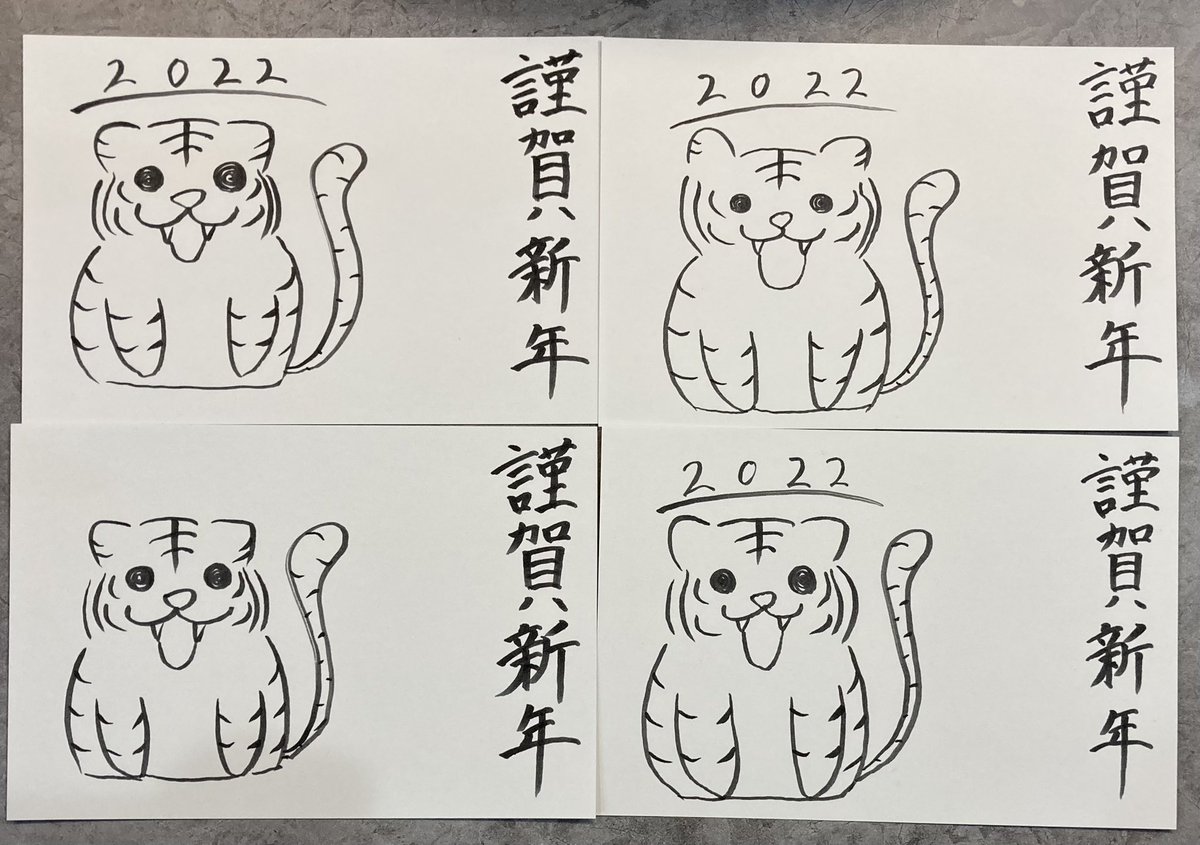 2022
謹賀新年
2022
謹賀新年
謹賀新年
2022
謹賀新年